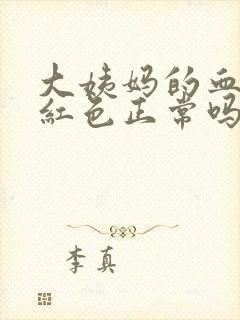 大姨妈的血
红色正常吗
李真